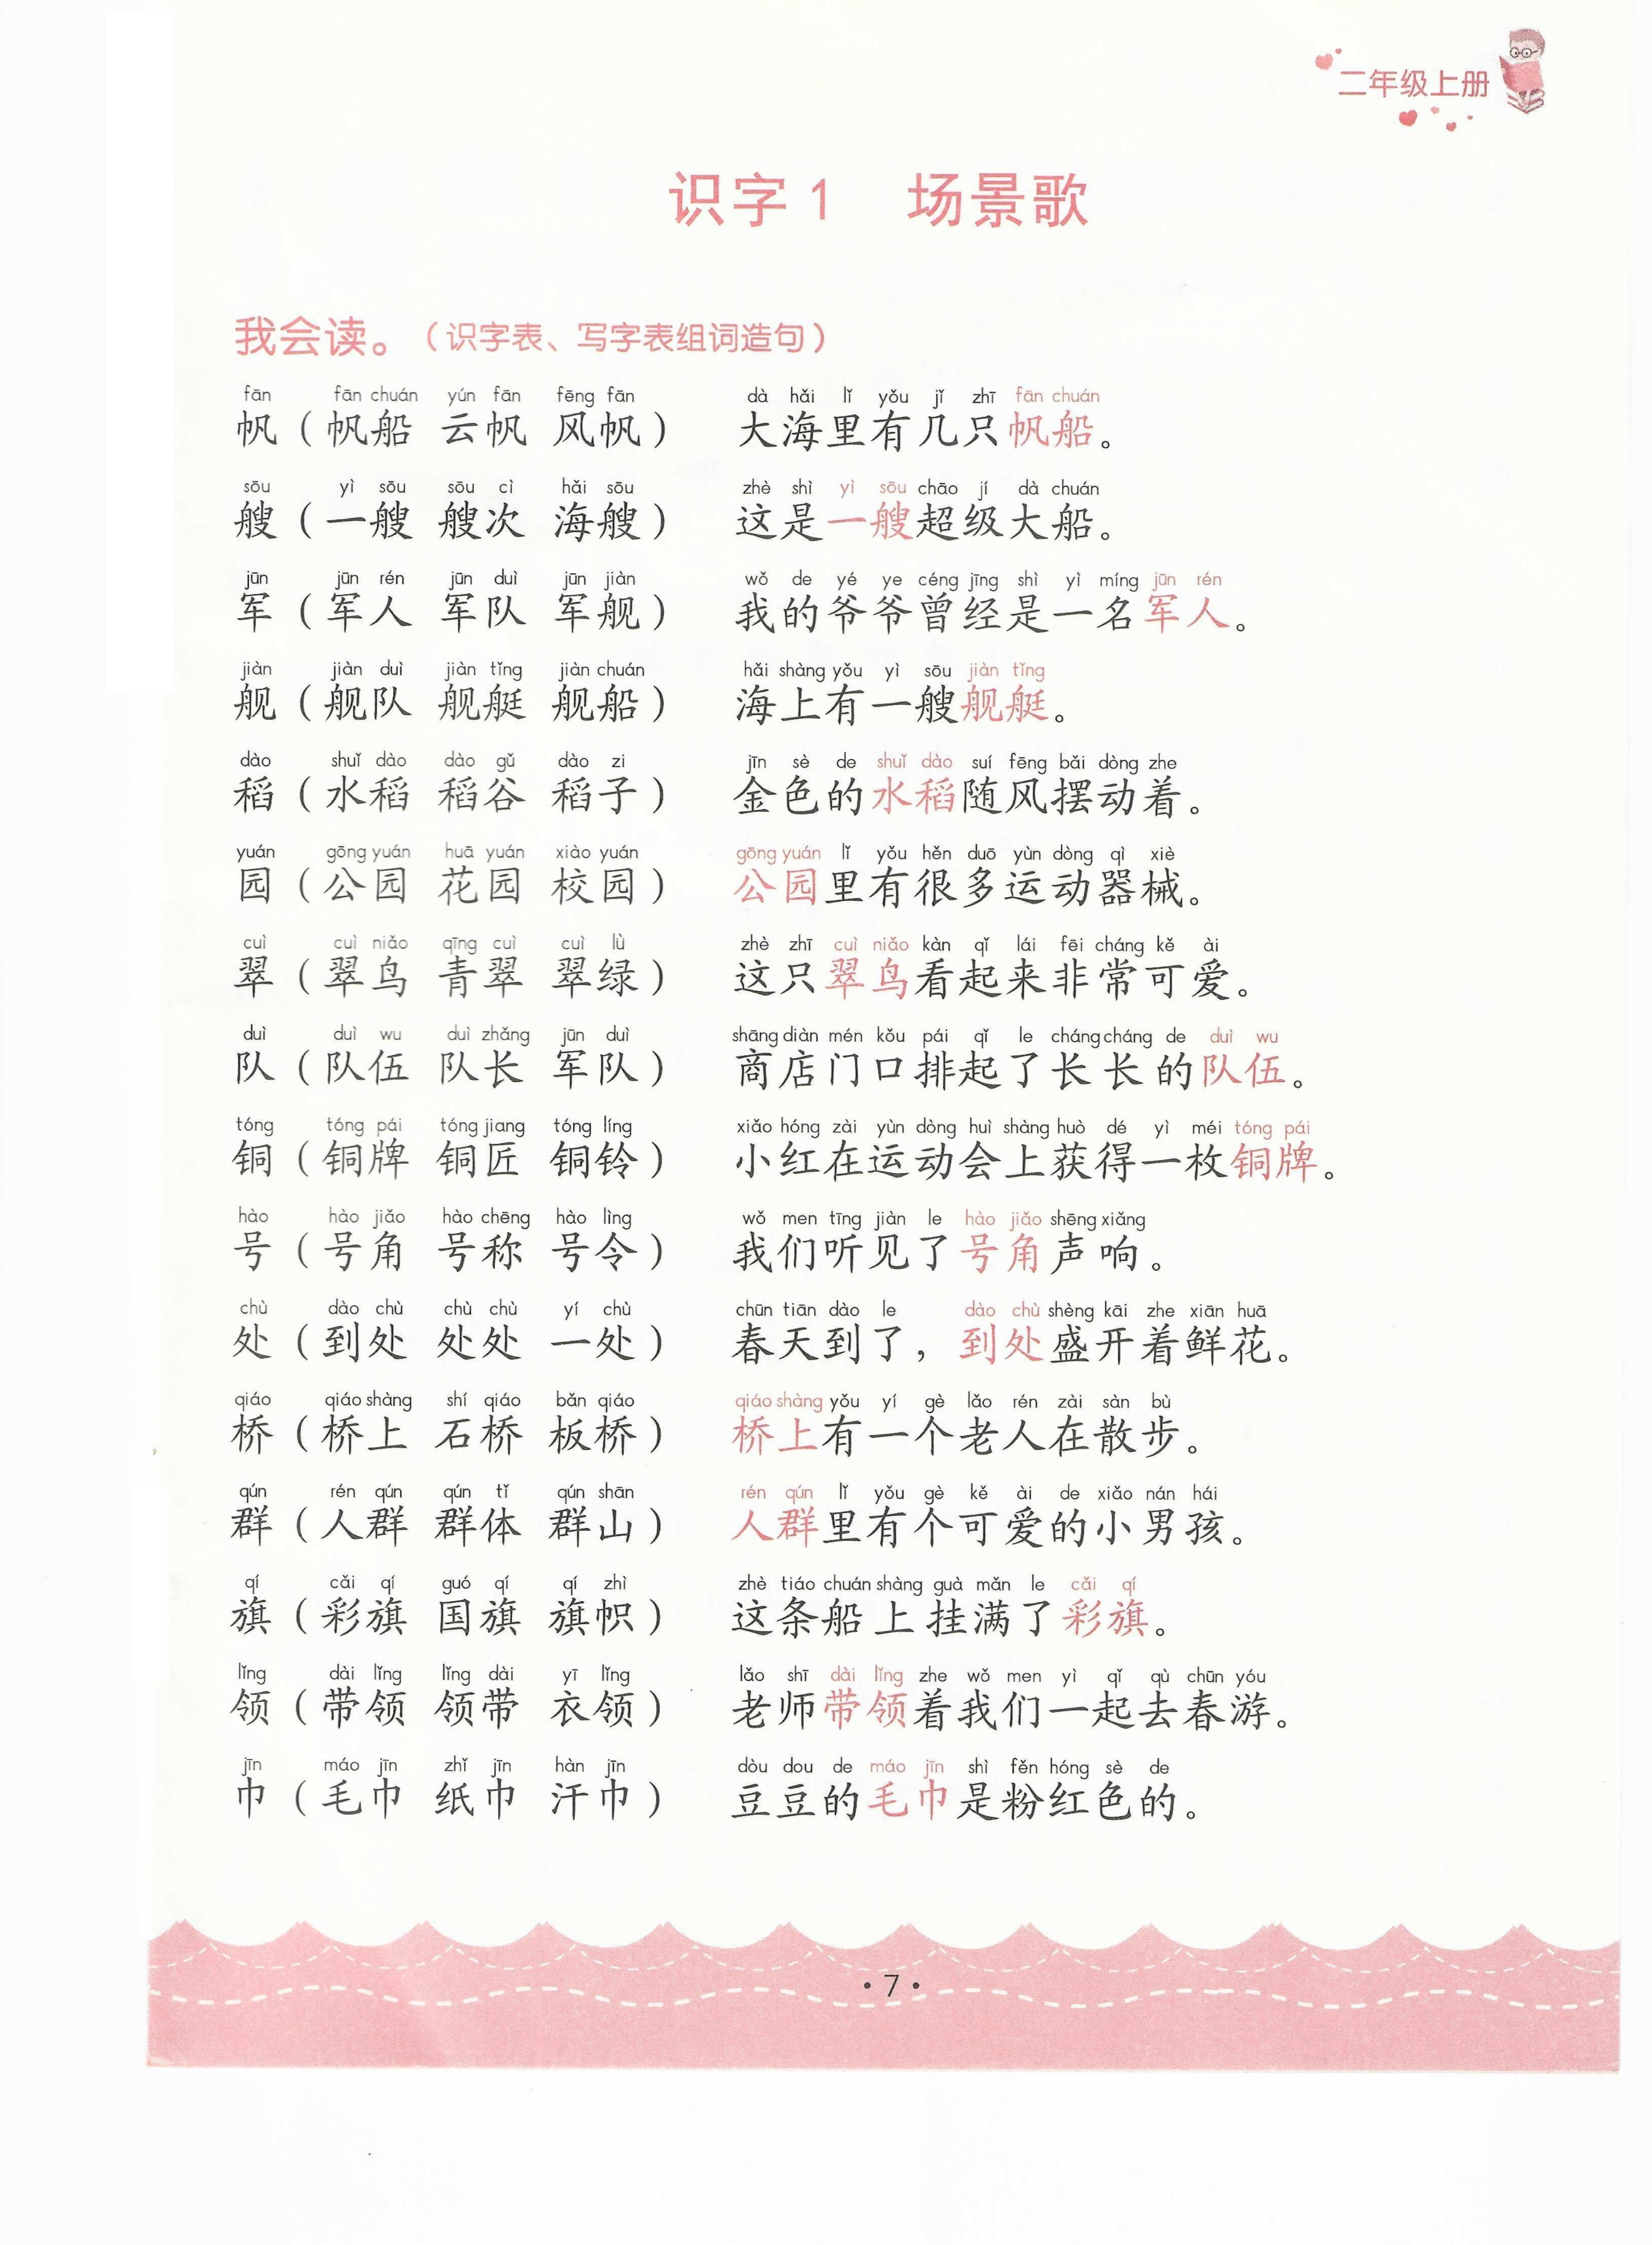 二年级上册
识字1 场景歌
我会读。（识字表、写字表组词造句）
fān fān chuán yún fān fēng fān dà hǎi lǐ yǒu jǐ zhī fān chuán
帆（帆船 云帆 风帆） 大海里有几只帆船。
sōu yì sōu sōu cì hǎi sōu zhè shì yì sōu chāo jí dà chuán
艘（一艘 艘次 海艘） 这是一艘超级大船。
jūn jūn rén jūn duì jūn jiàn wǒ de yé ye céng jīng shì yì míng jūn rén
军（军人 军队 军舰） 我的爷爷曾经是一名军人。
jiàn jiàn duì jiàn tǐng jiàn chuán hǎi shàng yǒu yì sōu jiàn tǐng
舰（舰队 舰艇 舰船） 海上有一艘舰艇。
dào shuǐ dào dào gǔ dào zi jīn sè de shuǐ dào suí fēng bǎi dòng zhe
稻（水稻 稻谷 稻子） 金色的水稻随风摆动着。
yuán gōng yuán huā yuán xiào yuán gōng yuán lǐ yǒu hěn duō yùn dòng qì xiè
园（公园 花园 校园） 公园里有很多运动器械。
cuì cuì niǎo qīng cuì cuì lǜ zhè zhī cuì niǎo kàn qǐ lái fēi cháng kě ài
翠（翠鸟 青翠 翠绿） 这只翠鸟看起来非常可爱。
duì duì wu duì zhǎng jūn duì shāng diàn mén kǒu pái qǐ le cháng cháng de duì wu
队（队伍 队长 军队） 商店门口排起了长长的队伍。
tóng tóng pái tóng jiang tóng líng xiǎo hóng zài yùn dòng huì shàng huò dé yì méi tóng pái
铜（铜牌 铜匠 铜铃） 小红在运动会上获得一枚铜牌。
hào hào jiǎo hào chēng hào lìng wǒ men tīng jiàn le hào jiǎo shēng xiǎng
号（号角 号称 号令） 我们听见了号角声响。
chù dào chù chù chù yí chù chūn tiān dào le dào chù shèng kāi zhe xiān huā
处（到处 处处 一处） 春天到了，到处盛开着鲜花。
qiáo qiáo shàng shí qiáo bǎn qiáo qiáo shàng yǒu yí gè lǎo rén zài sàn bù
桥（桥上 石桥 板桥） 桥上有一个老人在散步。
qún rén qún qún tǐ qún shān rén qún lǐ yǒu gè kě ài de xiǎo nán hái
群（人群 群体 群山） 人群里有个可爱的小男孩。
qí cǎi qí guó qí qí zhì zhè tiáo chuán shàng guà mǎn le cǎi qí
旗（彩旗 国旗 旗帜） 这条船上挂满了彩旗。
lǐng dài lǐng lǐng dài yī lǐng lǎo shī dài lǐng zhe wǒ men yì qǐ qù chūn yóu
领（带领 领带 衣领） 老师带领着我们一起去春游。
jīn máo jīn zhǐ jīn hàn jīn dòu dou de máo jīn shì fěn hóng sè de
巾（毛巾 纸巾 汗巾） 豆豆的毛巾是粉红色的。
•7•